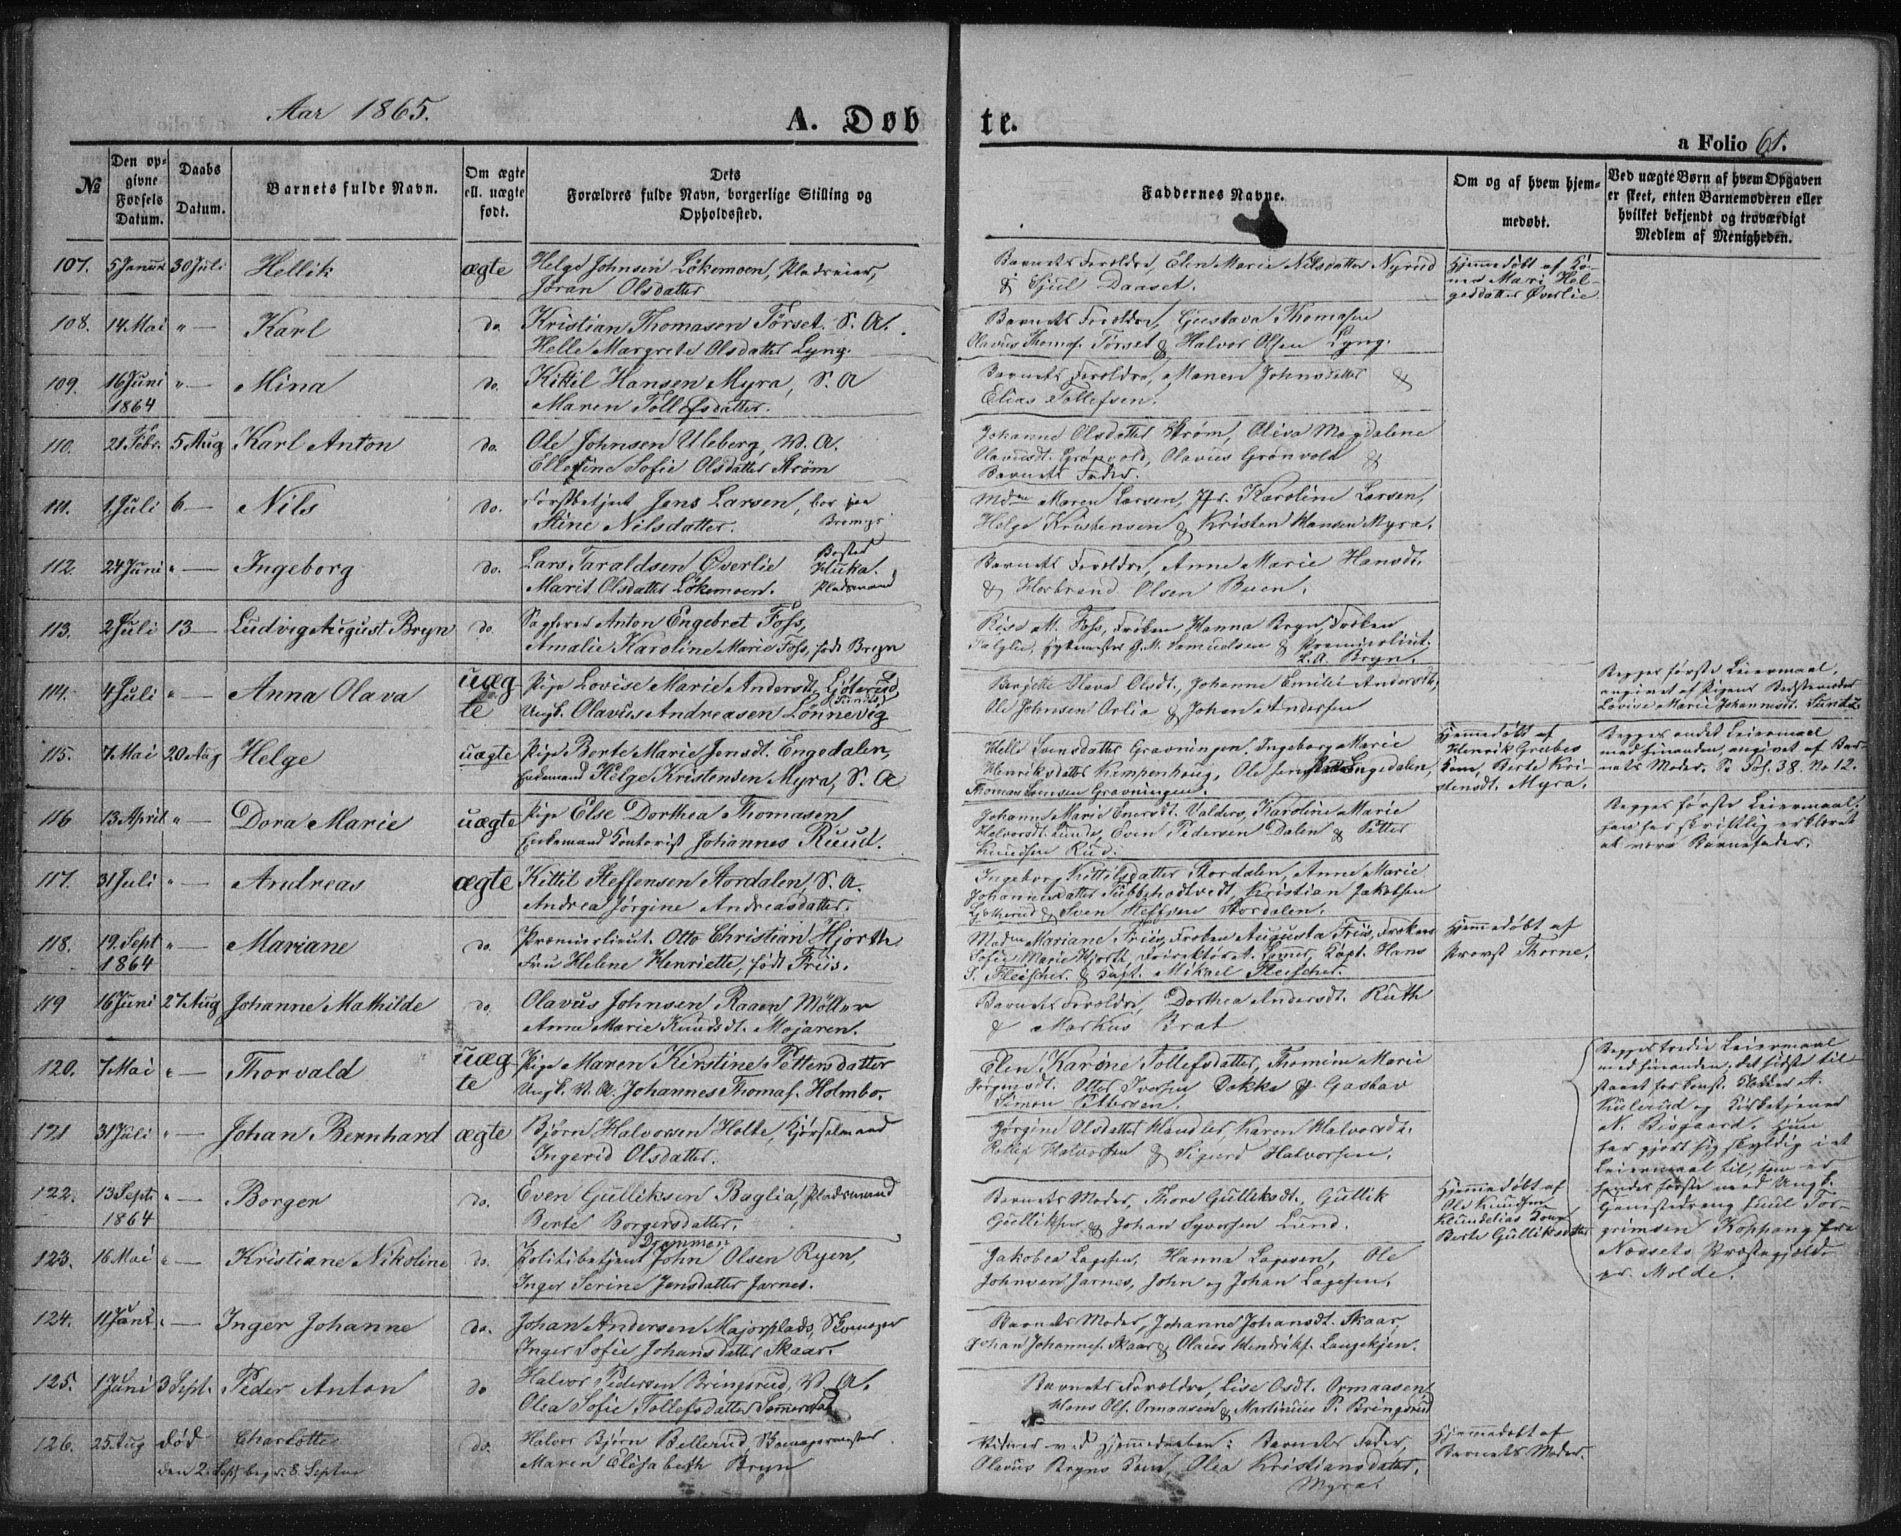 Aar 1865.
A. Døbte.
a Folio 61.
№
Den opgivne Fødsels Datum.
Daabs Datum.
Barnets fulde Navn.
Om ægte ell. uægte født.
Dets Forældres fulde Navn, borgerlige Stilling og Opholdssted.
Faddernes Navne.
Om og af hvem hjemmedøbt.
Ved uægte Børn af hvem Opgaven er skeet, enten Barnemoderen eller hvilket bekjendt og troværdigt Medlem af Menigheden.
107. 5 Januar 30 Juli Hellik ægte Helge Johnsen Lökemoen, Pladseier, Barnets Forældre, Elen Marie Nilsdatter Nyrud Hjemmedöbt af Ko-
Jöran Olsdatter & Gjul Daaset. ne Mari Hel-
gesdatter Överlie
108. 14 Mai " — Karl do Kristian Thomasen Törset. S. A. Barnets Forældre, Gustava Thomasen
Helle Margrete Olsdatter Lyng. Olavus Thomas. Törset & Halvor Olsen Lyng.
109. 16 Juni 1864 " — Mina do. Kittil Hansen Myra, S. A Barnets Forældre, Maren Johnsdatter &
Maren Tollefsdatter. Elias Tollefsen.
110. 21 Febr. 5 Aug Karl Anton do. Ole Johnsen Uleberg, V. A. Johanne Olsdatter Ström, Oliva Magdalene
Ellefine Sofie Olsdatter Ström Olavusdt. Grönvold, Olavus Grönvold &
Barnets Fader.
111. 1 Juli 6 — Nils do. Forstbetjent Jens Larsen, bor paa Mdm Maren Larsen, Jfr. Karoline Larsen,
Stine Nilsdatter. Helge Kristensen & Kristen Hansen Myra.
112. 24 Juni " — Ingeborg do. Lars Taraldsen Överlie Bosted Barnets Forældre, Anne Marie Hansdt.
Marit Olsdatter Lökemoen. Hluka. Pladsmand & Herbrand Olsen Buen.
113. 2 Juli 13 — Ludvig August Bryn do. Sagförer Anton Engebret Foss, M. Foss, Fröken Hanna Bryn, Fröken
Amalie Karoline Marie Foss, född Bryn Samuelsen & Premierlieut.
L. A. Bryn.
114. 4 Juli " — Anna Olava uægte Pige Lovise Marie Andersdt. Gjöterud, Birgitte Olava Olsdt, Johanne Emilie Andersdt, Begges første Leiermaal,
Ungk. Olavus Andreasen Lönnevig Ole Johnsen Orlia & Johan Andersen angivet af Pigens Bedstemoder
Lovise Marie Johannesdt. Sund
115. 7 Mai 20 Aug Helge uægte Pige Berte Marie Jensdt. Engedalen, Helle Svensdatter Gravningen, Ingeborg Marie Hjemmedöbt af Begges andet Leiermaal
Enkemand Helge Kristensen Myra, S. A Henriksdatter Kempenhaug, Ole Jensen Engedalen, Henrik Grubes med hinanden, angivet af Bar-
Thomas Svensen Gravningen. Kone, Berte Kri- nets Moder. Se Fol. 38. No 12.
stensdt. Myra.
116 13 April " — Dora Marie uægte Pige Else Dorthea Thomasen Johanne Marie Enersdt. Valders, Karoline Marie Begges første Leiermaal,
Enkemand Kontorist Johannes Ruud. Halvorsdt. Sunde, Even Pedersen Dalen & Petter han har skriftlig erklæret
Knudsen Rud. at være Barnefader.
117. 31 Juli " — Andreas ægte Kittil Steffensen Stordalen, S. A. Ingeborg Kittilsdatter Stordalen, Anne Marie
Andrea Jörgine Andreasdatter. Johannesdatter Tubbehodtvedt, Kristian Jakobsen
Gjöterud & Sven Steffsen Stordalen.
118. 19. Sept 1864 " — Mariane do. Premierlieut. Otto Christian Hjorth Madm Mariane Friis, Fröken Augusta Friis, Fröken Hjemmedöbt af
Fru Helene Henriette, född Friis. Sofie Marie Hjorth, Direktör A. Lamer, Kapt. Hans Provst Thorne.
S. Fleischer & Kapt. Mikael Fleischer.
119 16 Juni 27 Aug Johanne Mathilde do. Olavus Johnsen Raaen Möller Barnets Forældre, Dorthea Andersdt. Ruth
Anne Marie Knudsdt. Mojaren. & Markus Brat
120. 7 Mai " — Thorvald uægte Pige Maren Kirstine Pettersdatter Elen Karine Tollefsdatter, Thomine Marie Begges tredie Leiermaal
Ungk. V. A. Johannes Thomas. Holmbo. Jörgensdt. Otter Iversen Dokka & Gustav med hinanden, det første til-
Simon Pettersen. staaet for Konst. Klokker A.
121 31 Juli " — Johan Bernhard ægte Björn Halvorsen Holte, Kjörselmand Jörgine Olsdatter Wandler, Karen Halvorsdt. Kulerud og Kirketjener
Ingerid Olsdatter. Rolef Halvorsen & Sigurd Halvorsen. N. Bisgaard. Hun
har gjort sig skyldig i et
Leiermaal til, som er
122. 13 Sept 1864 " — Borger do. Even Gulliksen Baglia, Pladsmand Barnets Moder, Thore Gulliksdt., Gullik Hjemmedöbt af hendes første med Ungk.
Berte Borgersdatter. Gulliksen & Johan Syversen Lund. Ole Knudsen Tor-
Klundelias Kone grimsen Koppang fra
Berte Gulliksdatter Næssets Præstegjeld
pr. Molde.
123. 16 Mai " — Kristiane Nikoline do Politibetjent John Olsen Ryen, Drammen Jakobea Lagesen, Hanna Lagesen, Ole
Inger Serine Jensdatter Jarnes. Johnsen Jarnes, John og Johan Lagesen.
124. 11 Juni " — Inger Johanne do. Johan Andersen Majorplads, Skomager Barnets Moder, Johanne Johansdt. Skaar,
Inger Sofie Johansdatter Skaar. Johan Johannes. Skaar & Olaus Hendriks. Langekjen.
125. 1 Juni 3 Sept. Peder Anton do Halvor Pedersen Bringsrud, V. A. Barnets Forældre, Lise Osdt. Ormaasen
Olea Sofie Tollefsdatter Somerstad Hans Ols. Ormaasen & Martinius P. Bringsrud
126. 25 Aug död Charlotte do. Halvor Björn Bellerud, Skomagermester Vidner ved Hjemmedaaben: Barnets Fader, Hjemmedöbt af
den 2. Sept begr. 8. Septer Maren Elisabeth Bryn Olavus Bryns Kone, Olea Kristiansdatter, Barnets Moder.
Myra.